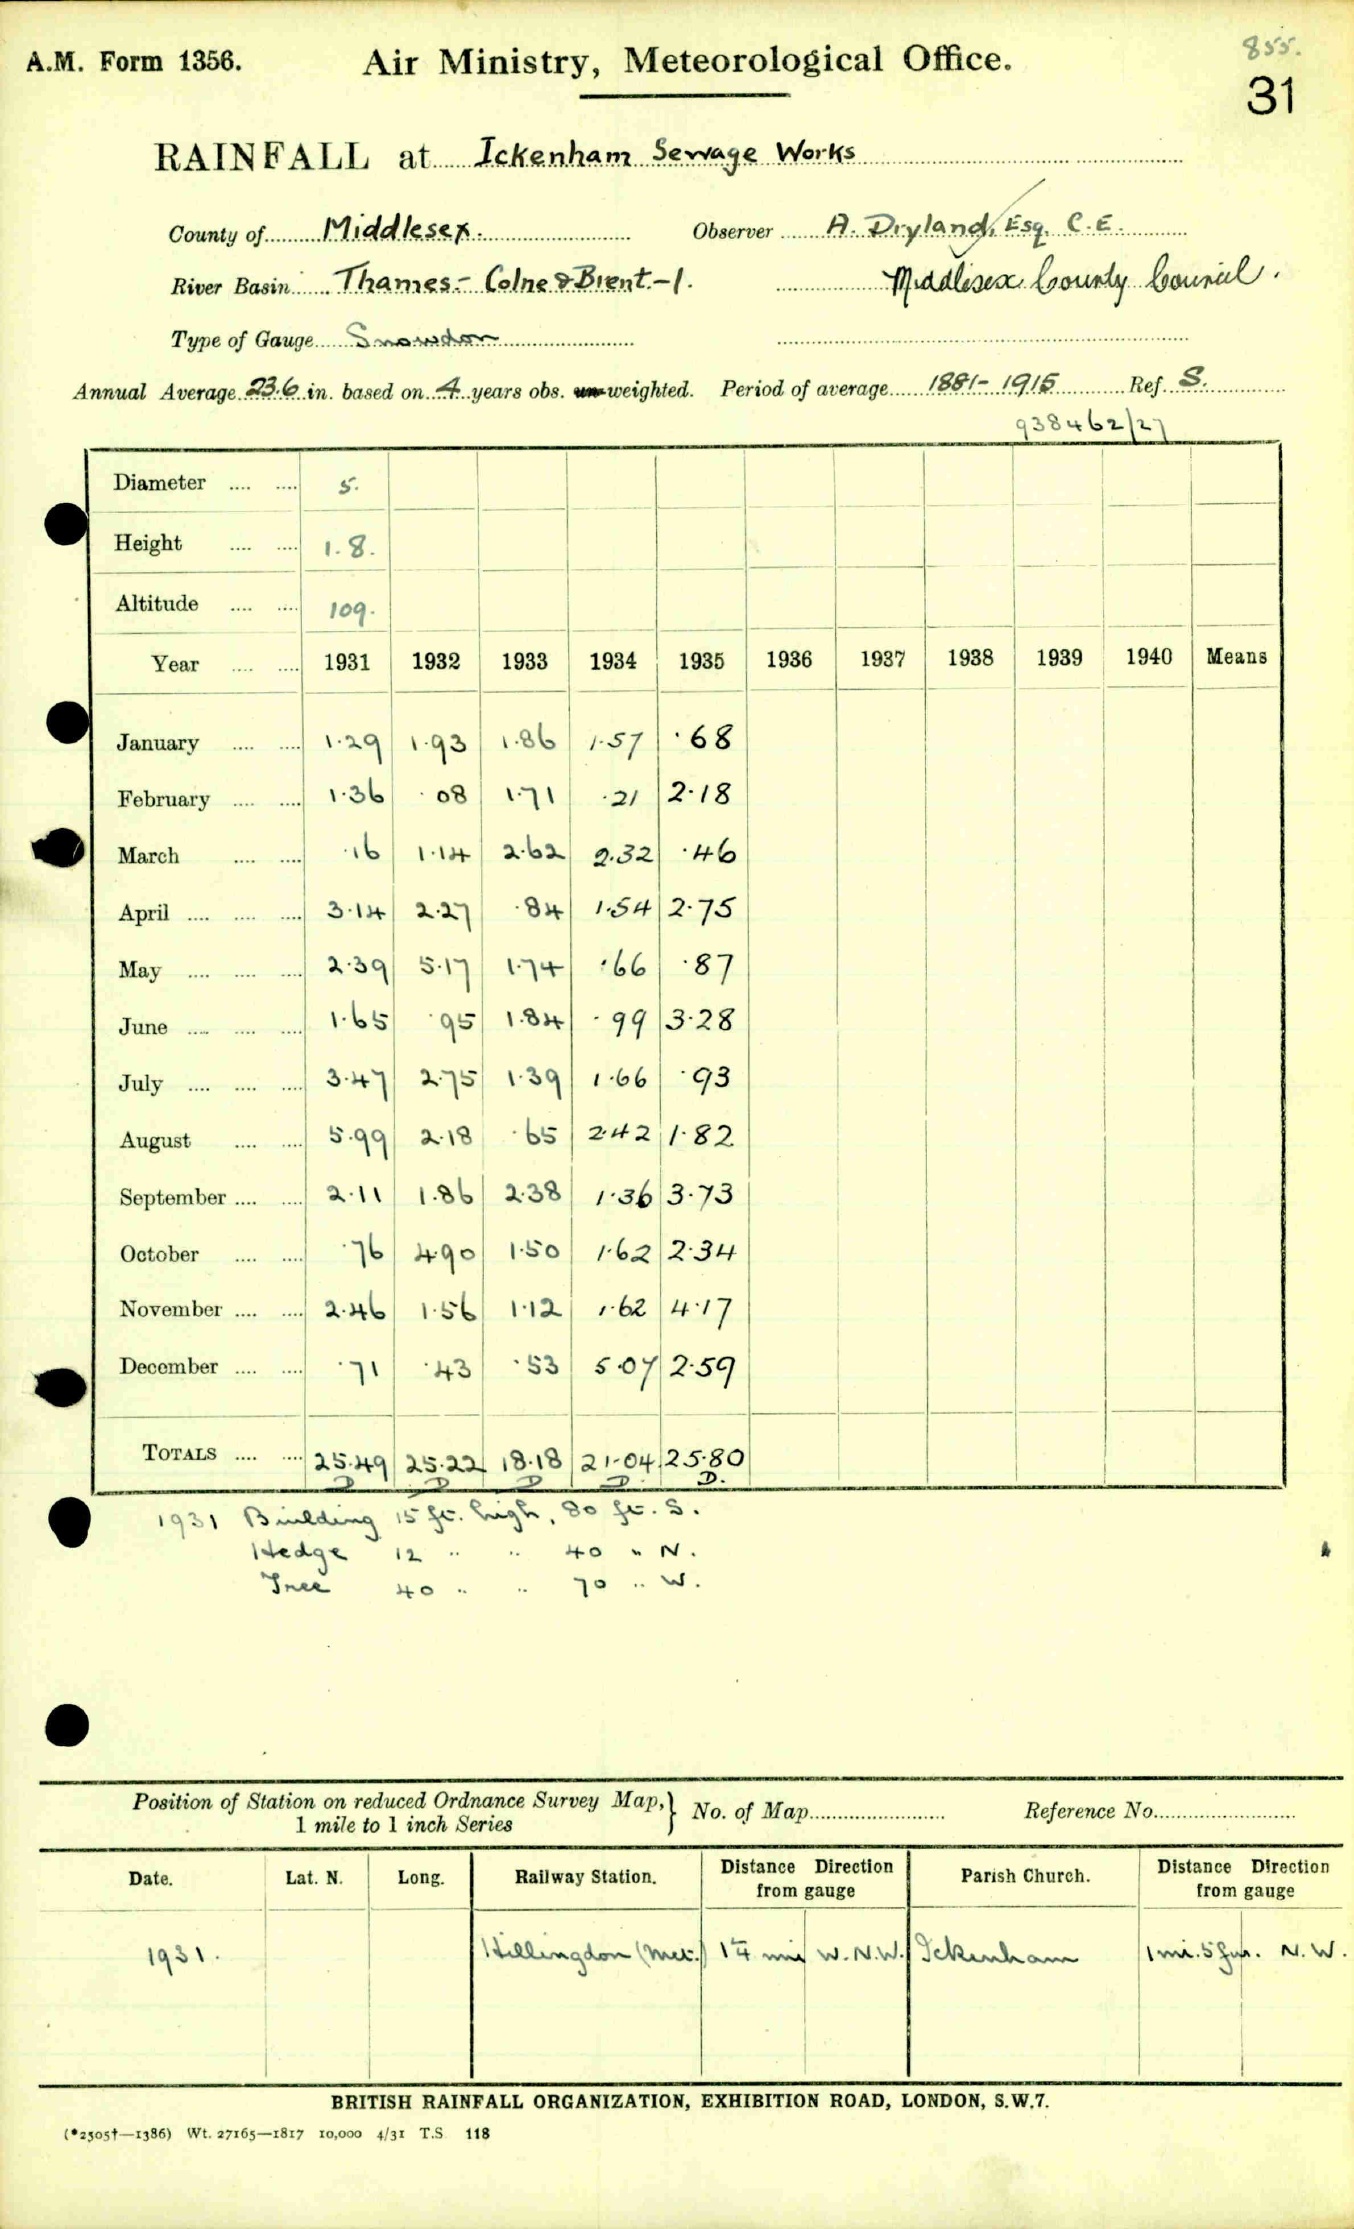 A.M. Form 1356.
Air Ministry, Meteorological Office.
855.
31
RAINFALL at Ickenham Sewage Works
County of Middlesex. Observer A. Dryland, Esq. C.E.
River Basin Thames - Colne & Brent - 1. Middlesex County Council.
Type of Gauge Snowdon
Annual Average 23.6 in. based on 4 years obs. un-weighted. Period of average 1881-1915 Ref. S.
938462/27
Diameter .... .... 5.
Height .... .... 1.8.
Altitude .... .... 109.
Year .... .... 1931 1932 1933 1934 1935 1936 1937 1938 1939 1940 Means
January .... .... 1.29 1.93 1.86 1.57 .68
February .... .... 1.36 .08 1.71 .21 2.18
March .... .... .16 1.14 2.62 2.32 .46
April .... .... .... 3.14 2.27 .84 1.54 2.75
May .... .... .... 2.39 5.17 1.74 .66 .87
June .... .... .... 1.65 .95 1.84 .99 3.28
July .... .... .... 3.47 2.75 1.39 1.66 .93
August .... .... 5.99 2.18 .65 2.42 1.82
September .... .... 2.11 1.86 2.38 1.36 3.73
October .... .... .76 4.90 1.50 1.62 2.34
November .... .... 2.46 1.56 1.12 1.62 4.17
December .... .... .71 .43 .53 5.07 2.59
TOTALS .... .... 25.49 25.22 18.18 21.04 25.80
D D D D. D.
1931 Building 15 ft. high, 80 ft. S.
Hedge 12 " " 40 " N.
Tree 40 " " 70 " W.
Position of Station on reduced Ordnance Survey Map, } No. of Map Reference No.
1 mile to 1 inch Series
Date. Lat. N. Long. Railway Station. Distance Direction from gauge Parish Church. Distance Direction from gauge
1931. Hillingdon (Met.) 1¼ mi W.N.W. Ickenham 1 mi. 5 fur. N.W.
BRITISH RAINFALL ORGANIZATION, EXHIBITION ROAD, LONDON, S.W.7.
(*2505†—1386) Wt. 27165—1817 10,000 4/31 T.S. 118